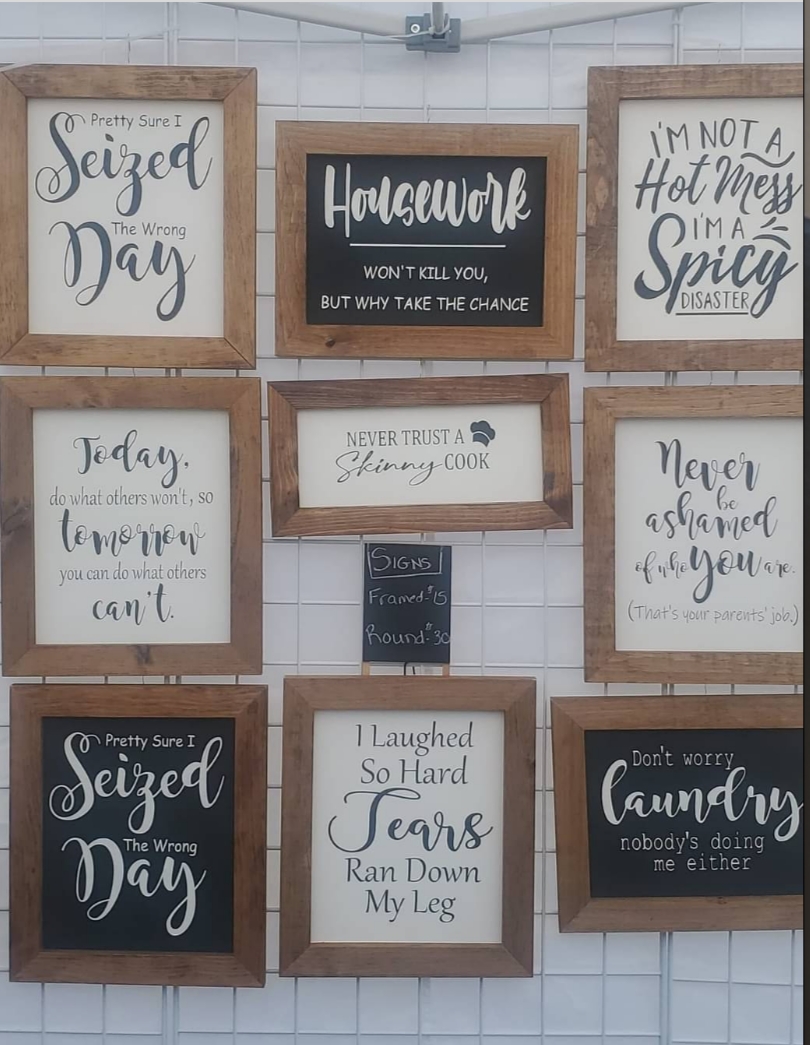 Pretty Sure I
Seized
The Wrong
Day
Housework
WON'T KILL YOU,
BUT WHY TAKE THE CHANCE
I'M NOT A
Hot Mess
I'M A
Spicy
DISASTER
Today,
do what others won't, so
tomorrow
you can do what others
can't.
NEVER TRUST A
Skinny COOK
Never
be
ashamed
of who you are.
(That's your parents' job.)
SIGNS
Framed-$15
Round-$30
Pretty Sure I
Seized
The Wrong
Day
I Laughed
So Hard
Tears
Ran Down
My Leg
Don't worry
laundry
nobody's doing
me either